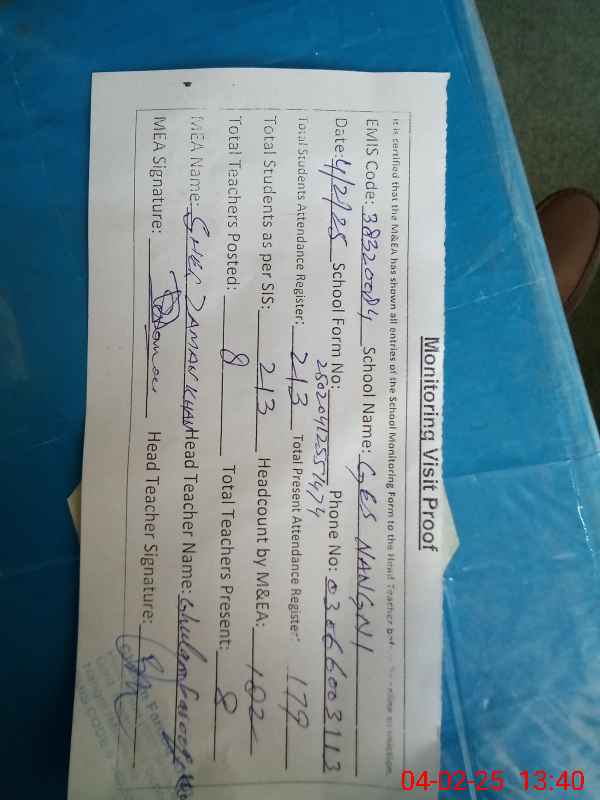 Monitoring Visit Proof
It is certified that the M&EA has shown all entries of the School Monitoring Form to the Head Teacher
EMIS Code: 38320084 School Name: GES NANGNI
Date: 4/2/25 School Form No: 2802042557474 Phone No: 03066003113
Total Students Attendance Register: 213 Total Present Attendance Register: 179
Total Students as per SIS: 213 Headcount by M&EA: 182
Total Teachers Posted: 8 Total Teachers Present: 8
MEA Name: SHER ZAMAN KHAN Head Teacher Name: Ghulam Farooq
MEA Signature: Head Teacher Signature:
04-02-25 13:40